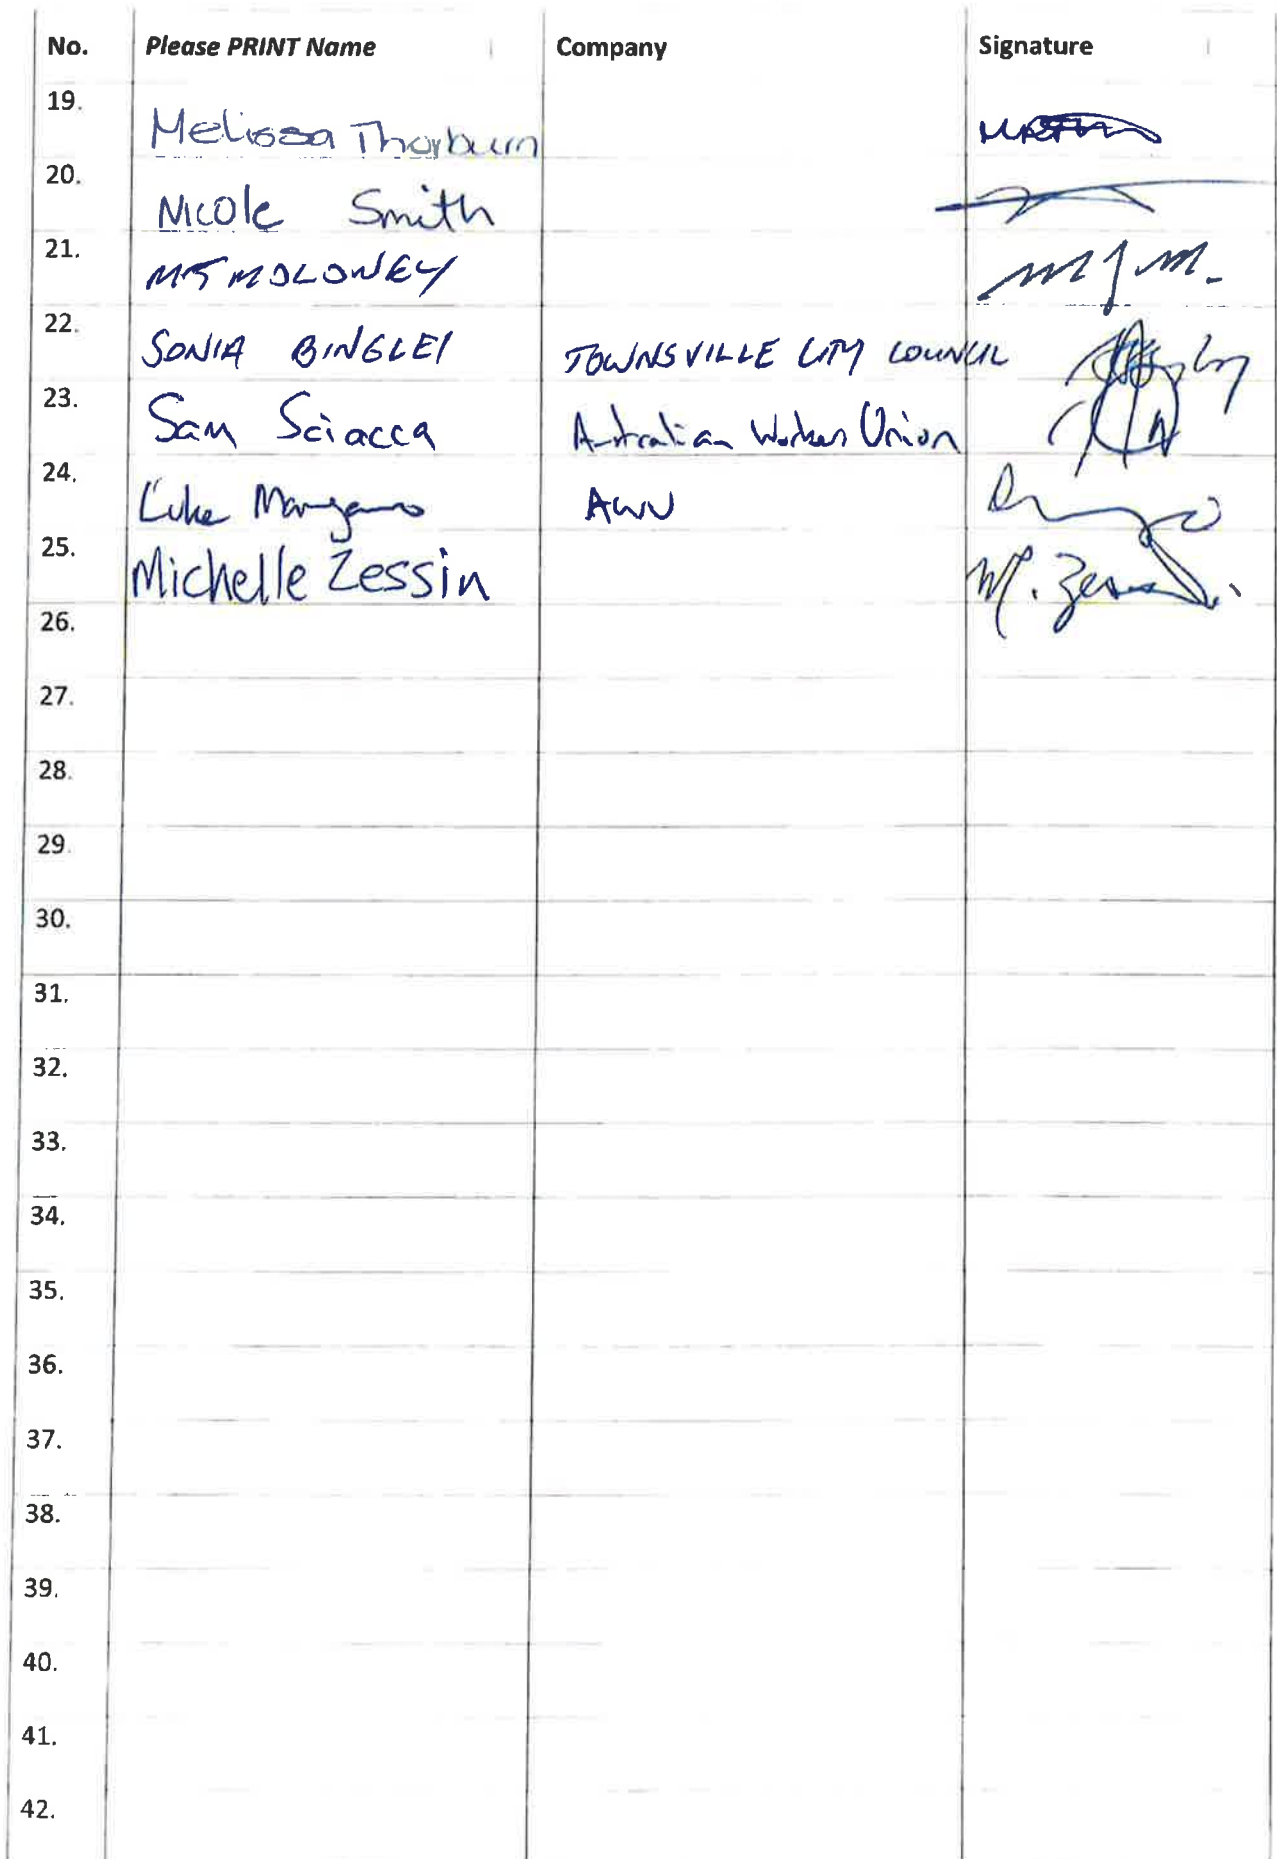 No. Please PRINT Name Company Signature
19. Melissa Thorburn
20. Nicole Smith
21. MJ MOLONEY MJM.
22. SONIA BINGLEY TOWNSVILLE CITY COUNCIL
23. Sam Sciacca Australian Workers Union
24. Luke Mangano AWU
25. Michelle Zessin M. Zessin
26.
27.
28.
29.
30.
31.
32.
33.
34.
35.
36.
37.
38.
39.
40.
41.
42.